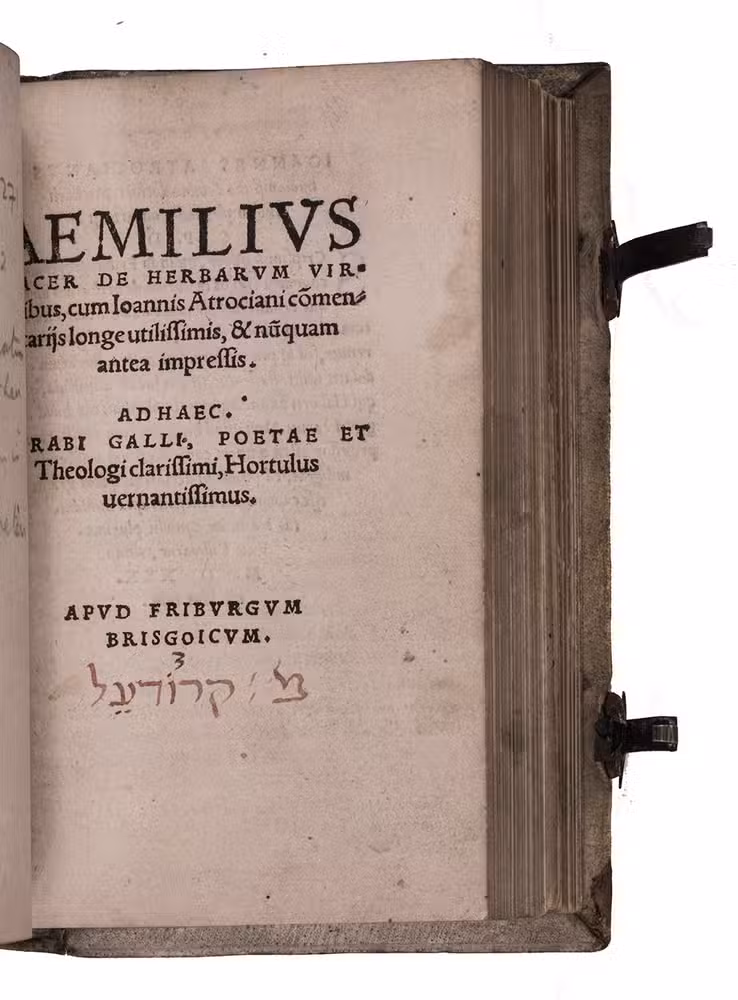 AEMILIVS
ACER DE HERBARVM VIR⸗
ibus, cum Ioannis Atrociani cõmen⸗
tarijs longe utilissimis, & nũquam
antea impressis.
AD HAEC.
RABI GALLI, POETAE ET
Theologi clarissimi, Hortulus
uernantissimus.
APVD FRIBVRGVM
BRISGOICVM.
3
קרודעל
27
2